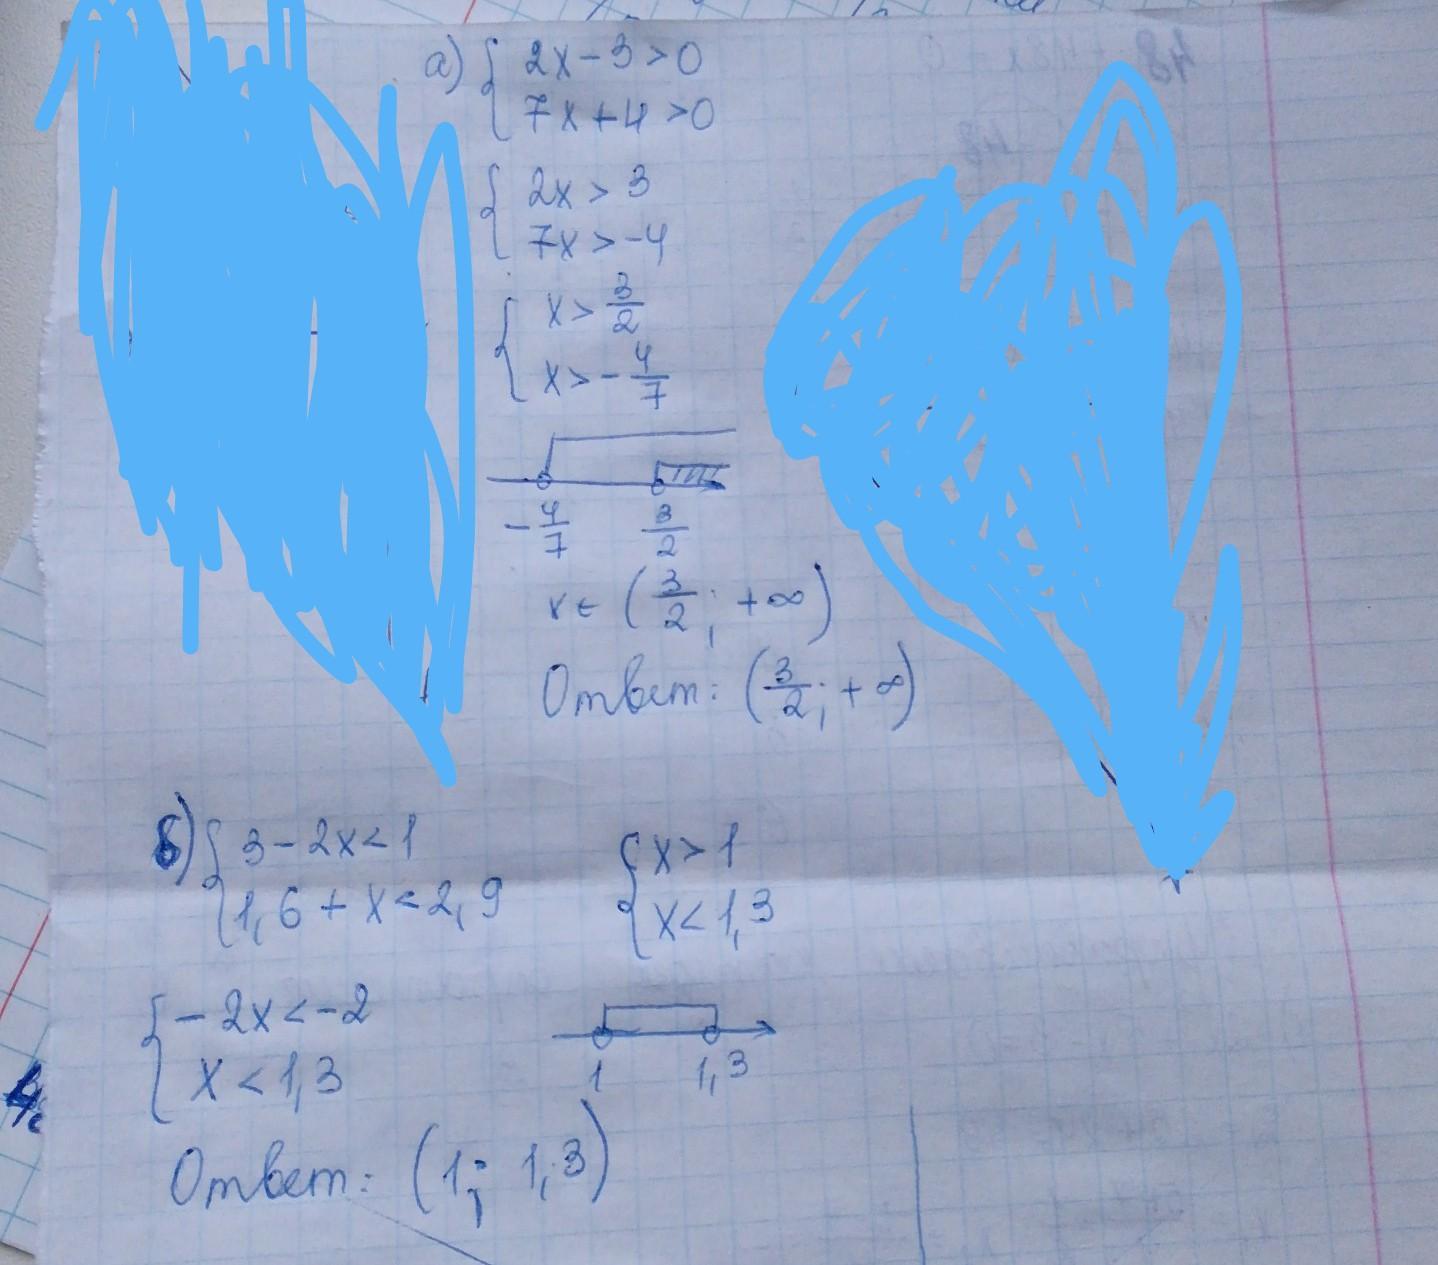 а) { 2x-3>0
7x+4>0
{ 2x>3
7x>-4
{ x> 3/2
x>- 4/7
- 4/7 3/2
x∈ ( 3/2 ; +∞)
Ответ: ( 3/2 ; +∞)
б) { 3-2x<1
1,6+x<2,9
{ -2x<-2
x<1,3
{ x>1
x<1,3
1 1,3
Ответ: (1; 1,3)